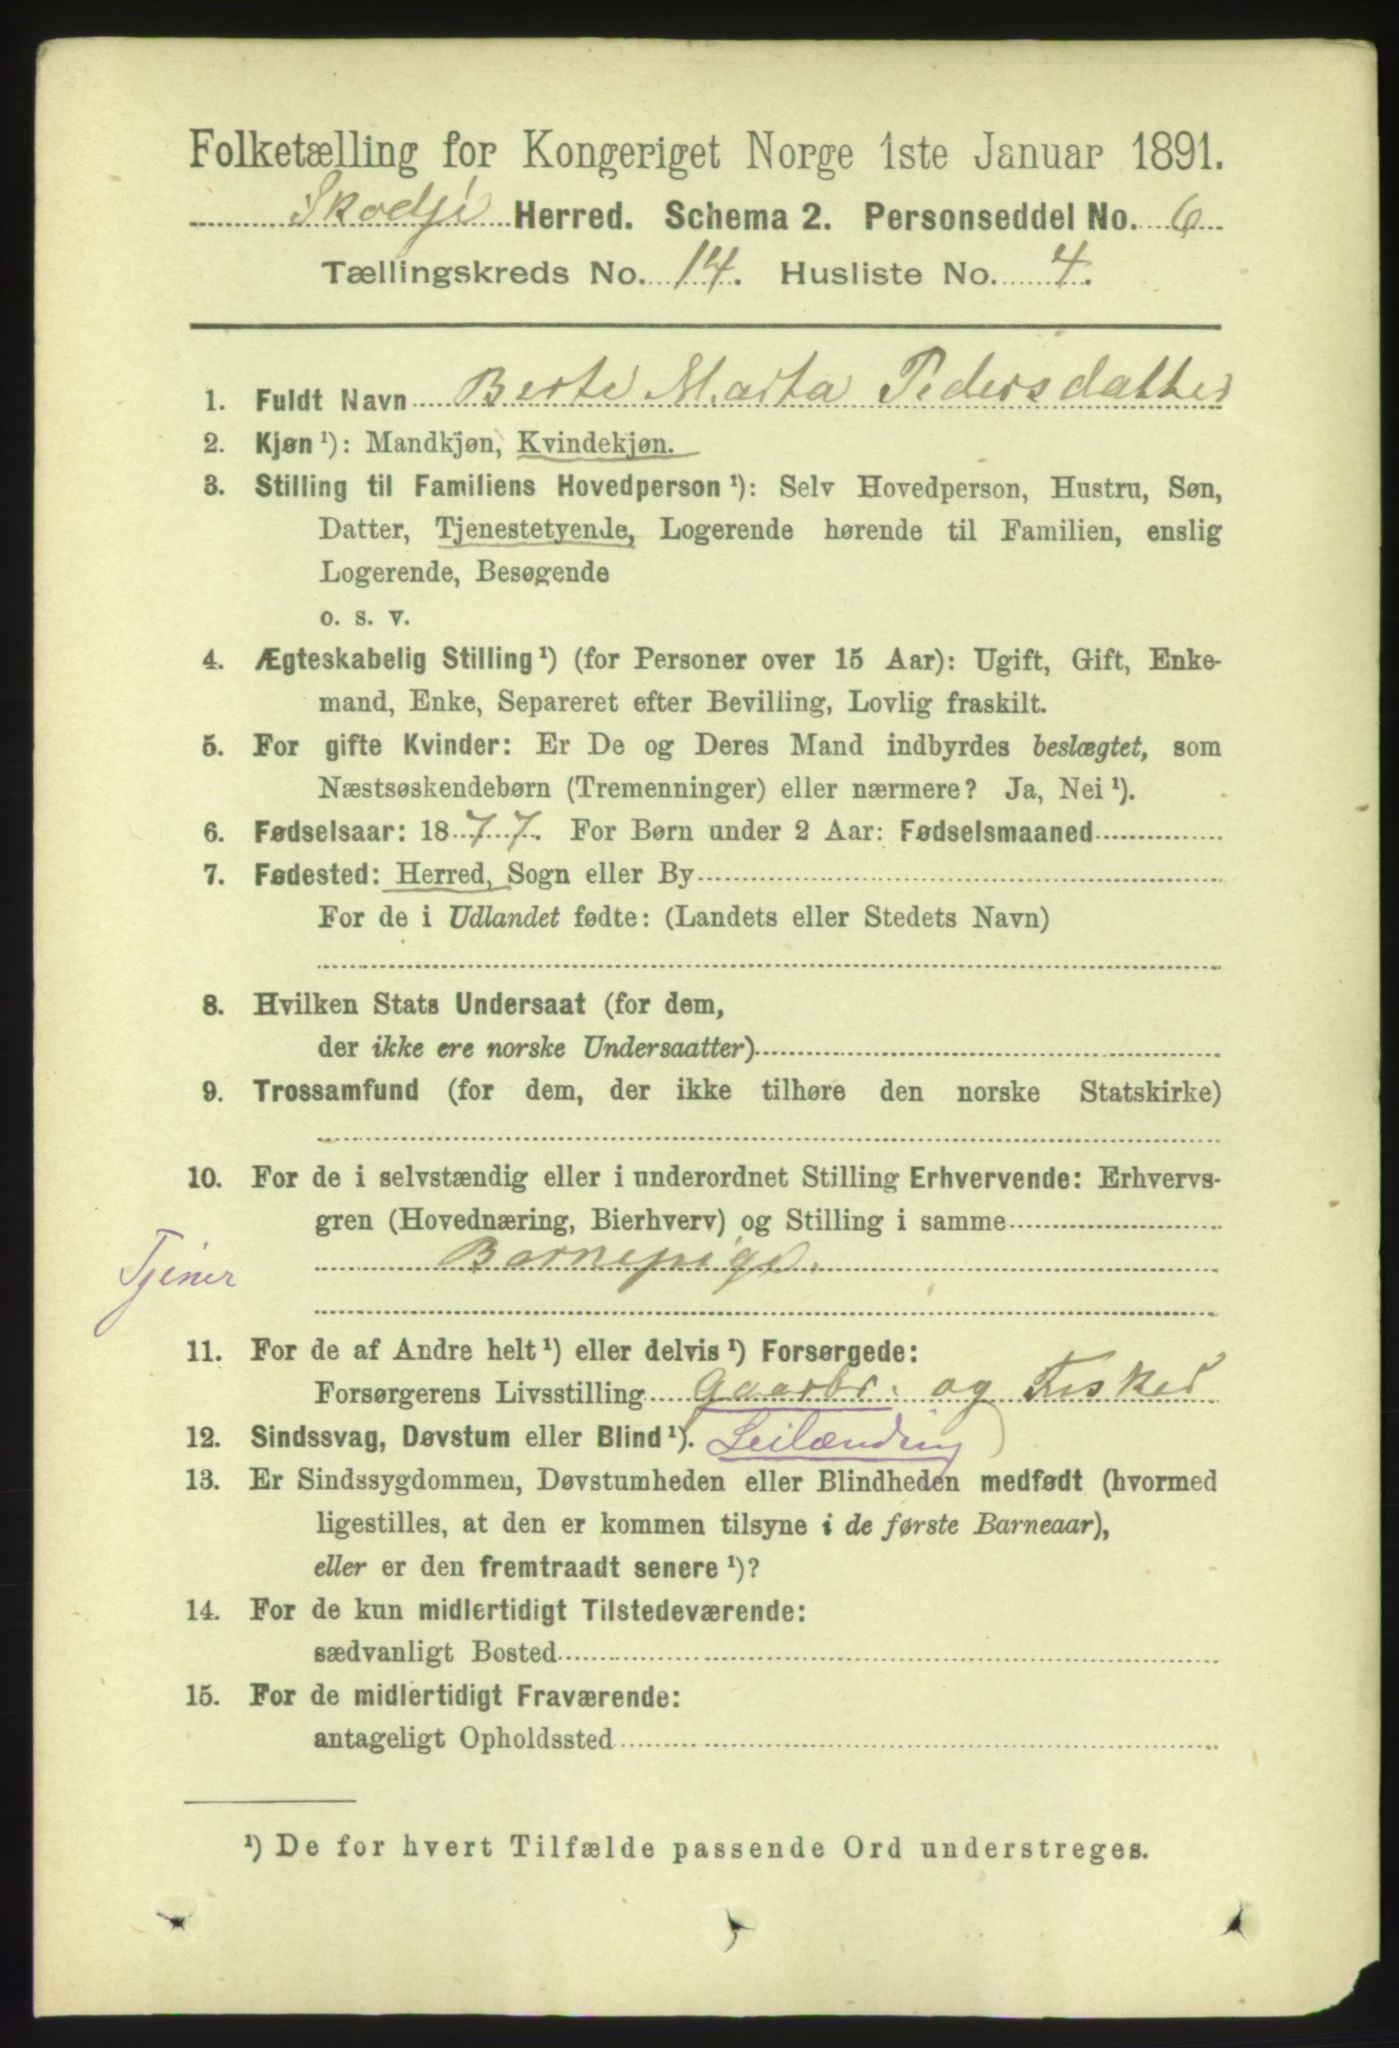 Folketælling for Kongeriget Norge 1ste Januar 1891.
Skodje Herred. Schema 2. Personseddel No. 6
Tællingskreds No. 14. Husliste No. 4.
1. Fuldt Navn Berte Marta Pedersdatter
2. Kjøn ¹): Mandkjøn, Kvindekjøn.
3. Stilling til Familiens Hovedperson ¹): Selv Hovedperson, Hustru, Søn,
Datter, Tjenestetyende, Logerende hørende til Familien, enslig
Logerende, Besøgende
o. s. v.
4. Ægteskabelig Stilling ¹) (for Personer over 15 Aar): Ugift, Gift, Enke-
mand, Enke, Separeret efter Bevilling, Lovlig fraskilt.
5. For gifte Kvinder: Er De og Deres Mand indbyrdes beslægtet, som
Næstsøskendebørn (Tremenninger) eller nærmere? Ja, Nei ¹).
6. Fødselsaar: 1877. For Børn under 2 Aar: Fødselsmaaned
7. Fødested: Herred, Sogn eller By
For de i Udlandet fødte: (Landets eller Stedets Navn)
8. Hvilken Stats Undersaat (for dem,
der ikke ere norske Undersaatter)
9. Trossamfund (for dem, der ikke tilhøre den norske Statskirke)
10. For de i selvstændig eller i underordnet Stilling Erhvervende: Erhvervs-
gren (Hovednæring, Bierhverv) og Stilling i samme
Barnepige.
Tjener
11. For de af Andre helt ¹) eller delvis ¹) Forsørgede:
Forsørgerens Livsstilling Gaarbr. og Fisker
12. Sindssvag, Døvstum eller Blind ¹). Leilænding
13. Er Sindssygdommen, Døvstumheden eller Blindheden medfødt (hvormed
ligestilles, at den er kommen tilsyne i de første Barneaar),
eller er den fremtraadt senere ¹)?
14. For de kun midlertidigt Tilstedeværende:
sædvanligt Bosted
15. For de midlertidigt Fraværende:
antageligt Opholdssted
¹) De for hvert Tilfælde passende Ord understreges.